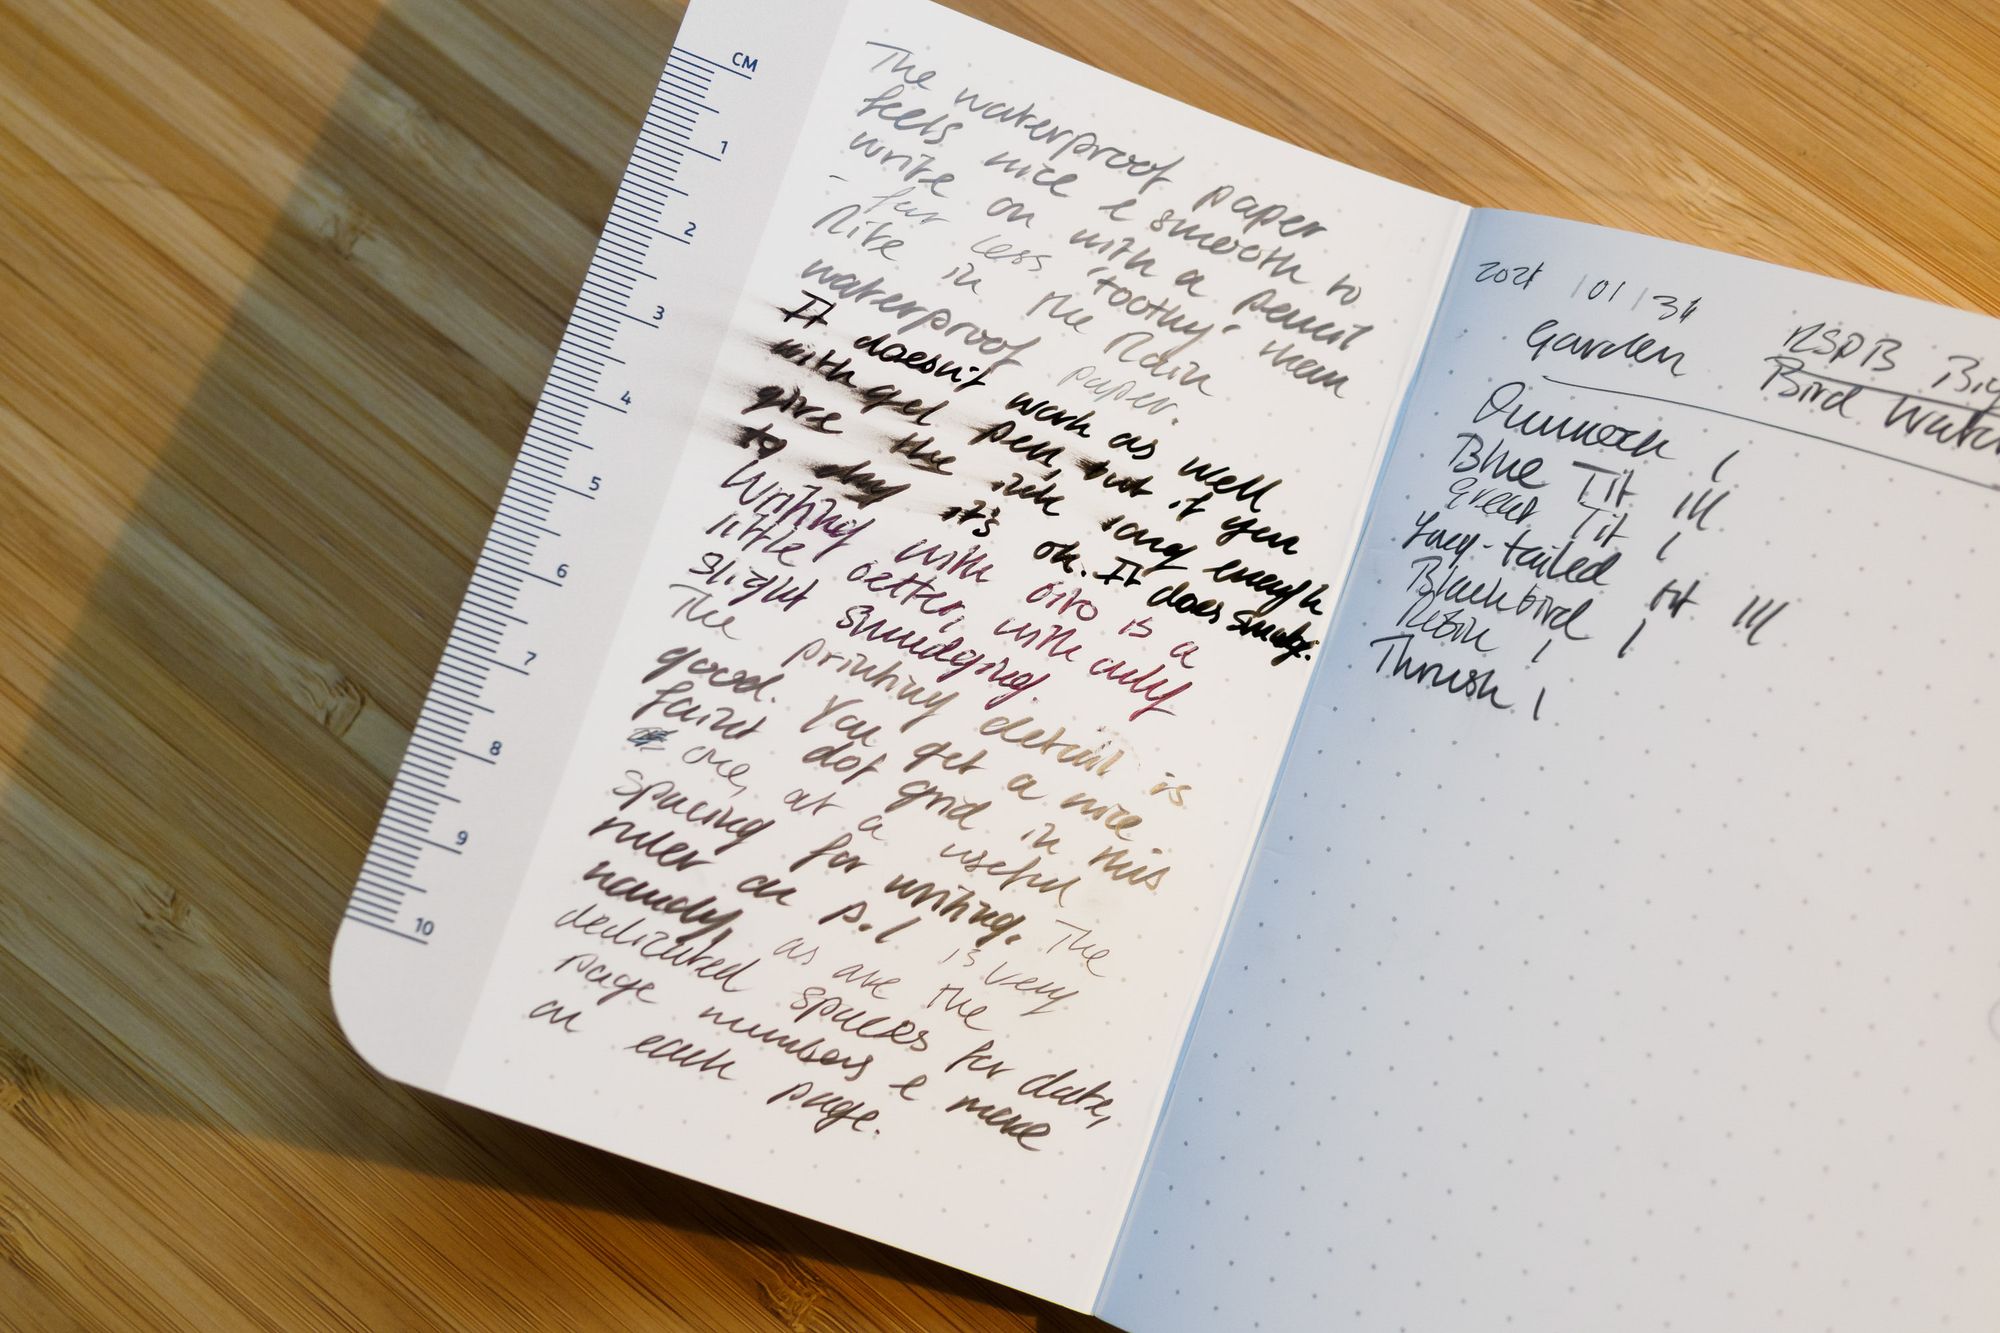 CM
1
2
3
4
5
6
7
8
9
10
The waterproof paper
feels nice & smooth to
write on with a pencil
- far less 'toothy' than
Rite in the Rain
waterproof paper.
It doesn't work as well
with gel pen but if you
give the ink long enough
to dry it's ok. It does smudge.
Writing with biro is a
little better, with only
slight smudging.
The printing detail is
good. You get a nice
faint dot grid in this
one, at a useful
spacing for writing. The
ruler on p.1 is very
handy, as are the
dedicated spaces for date,
page numbers & more
on each page.
2021 / 01 / 31
Garden RSPB Big
Bird Watch
Dunnock I
Blue Tit III
Great Tit I
Long-tailed tit III
Blackbird I
Robin I
Thrush I